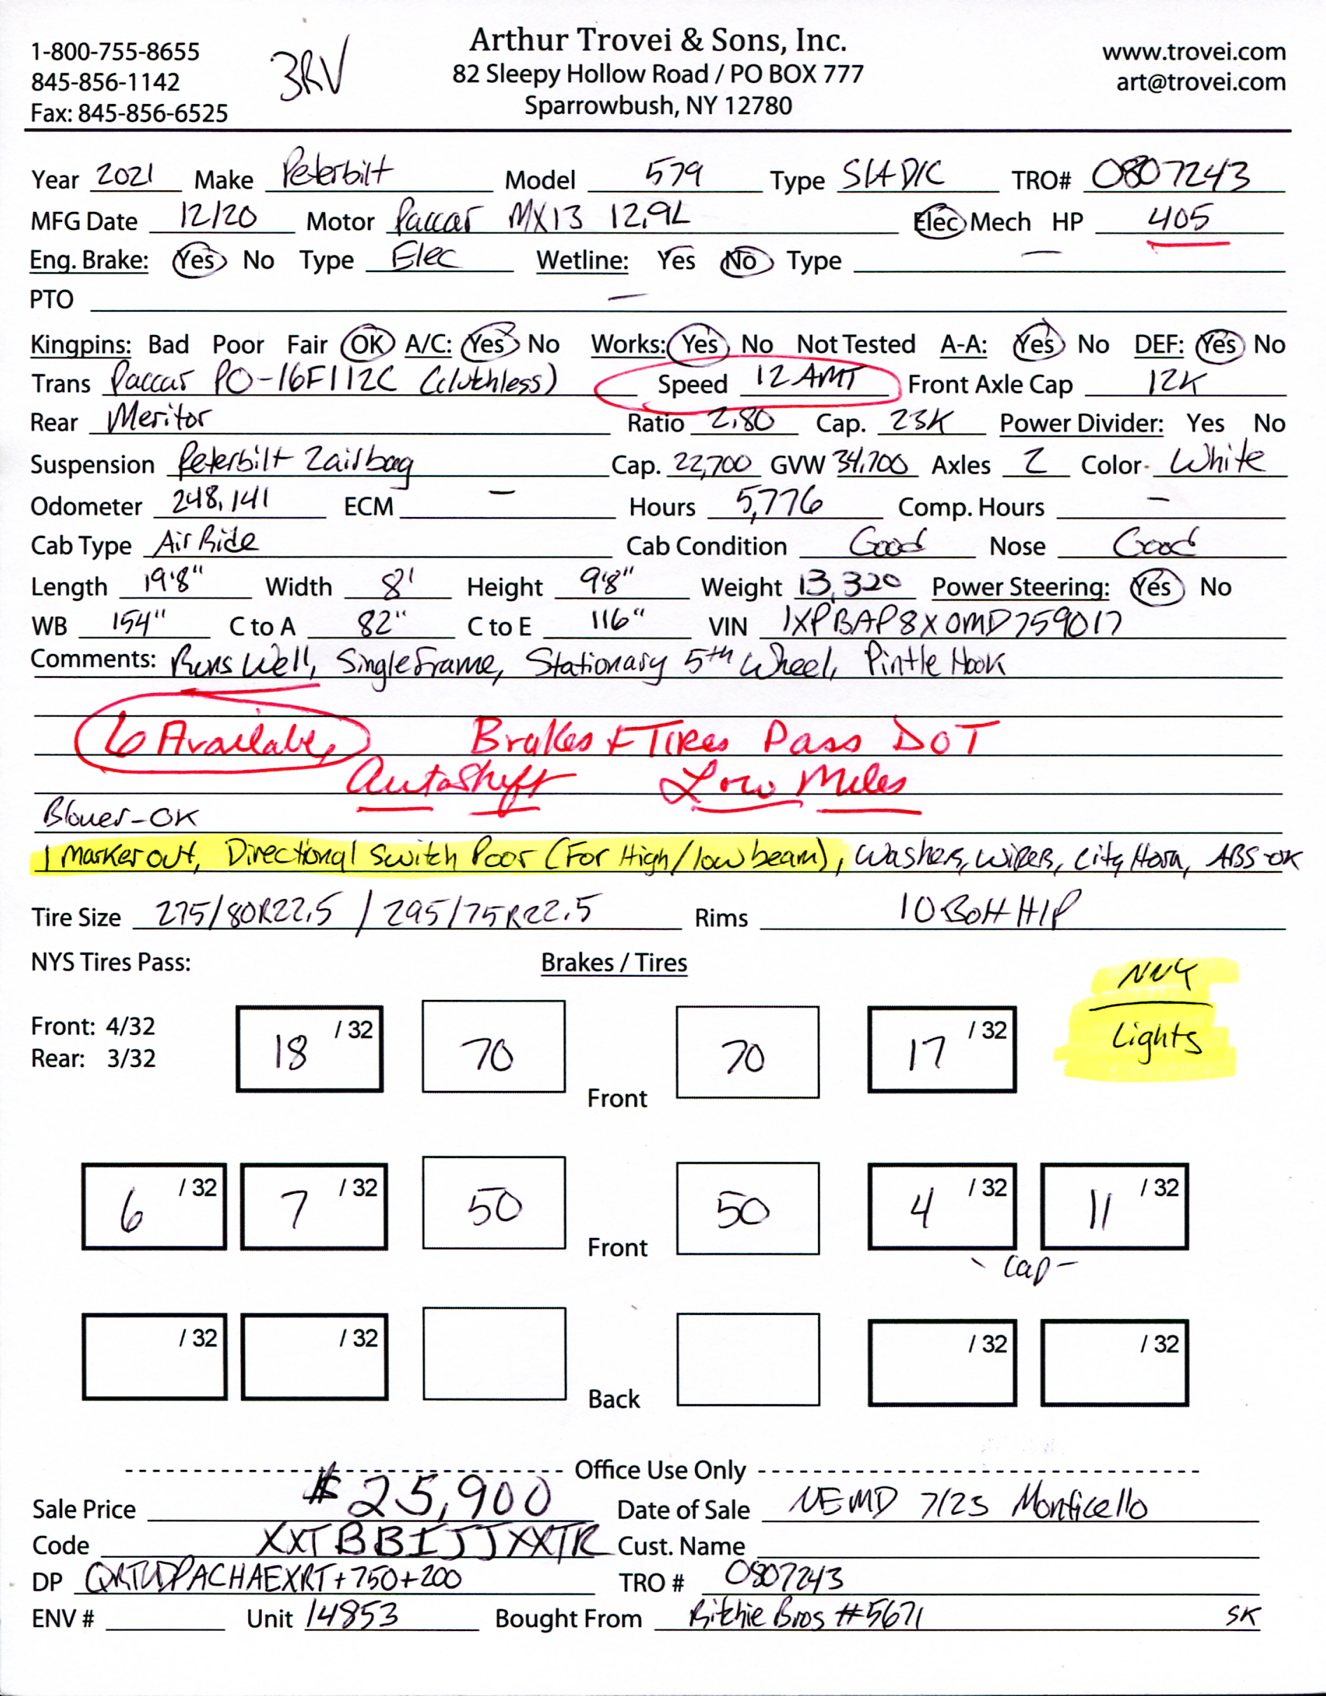 1-800-755-8655
845-856-1142
Fax: 845-856-6525
3RV
Arthur Trovei & Sons, Inc.
82 Sleepy Hollow Road / PO BOX 777
Sparrowbush, NY 12780
www.trovei.com
art@trovei.com
Year 2021 Make Peterbilt Model 579 Type S/A D/C TRO# 0807243
MFG Date 12/20 Motor Paccar MX13 12.9L Elec Mech HP 405
Eng. Brake: Yes No Type Elec Wetline: Yes No Type —
PTO —
Kingpins: Bad Poor Fair OK A/C: Yes No Works: Yes No Not Tested A-A: Yes No DEF: Yes No
Trans Paccar PO-16F112C (clutchless) Speed 12 AMT Front Axle Cap 12K
Rear Meritor Ratio 2.80 Cap. 23K Power Divider: Yes No
Suspension Peterbilt 2airbag Cap. 22,700 GVW 34,700 Axles 2 Color White
Odometer 248,141 ECM — Hours 5,776 Comp. Hours —
Cab Type Air Ride Cab Condition Good Nose Good
Length 19'8" Width 8' Height 9'8" Weight 13,320 Power Steering: Yes No
WB 154" C to A 82" C to E 116" VIN 1XPBAP8X0MD759017
Comments: Runs Well, Single Frame, Stationary 5th Wheel, Pintle Hook
6 Available, Brakes & Tires Pass DOT
Autoshift Low Miles
Blower-OK
1 Marker out, Directional Switch Poor (For High/low beam), Washers, Wipers, City Horn, ABS-OK
Tire Size 275/80R22.5 / 295/75R22.5 Rims 10 Bolt H/P
NYS Tires Pass: Brakes / Tires
NNY
Lights
Front: 4/32
Rear: 3/32
18 /32 70 Front 70 17 /32
6 /32 7 /32 50 Front 50 4 /32 11 /32
- Cap -
/32 /32 Back /32 /32
Office Use Only
Sale Price $25,900 Date of Sale NEMD 7/23 Monticello
Code XXTBBIJJXXTR Cust. Name
DP QRTUDPACHAEXRT+750+200 TRO # 0807243
ENV # Unit 14853 Bought From Ritchie Bros #5671 SK